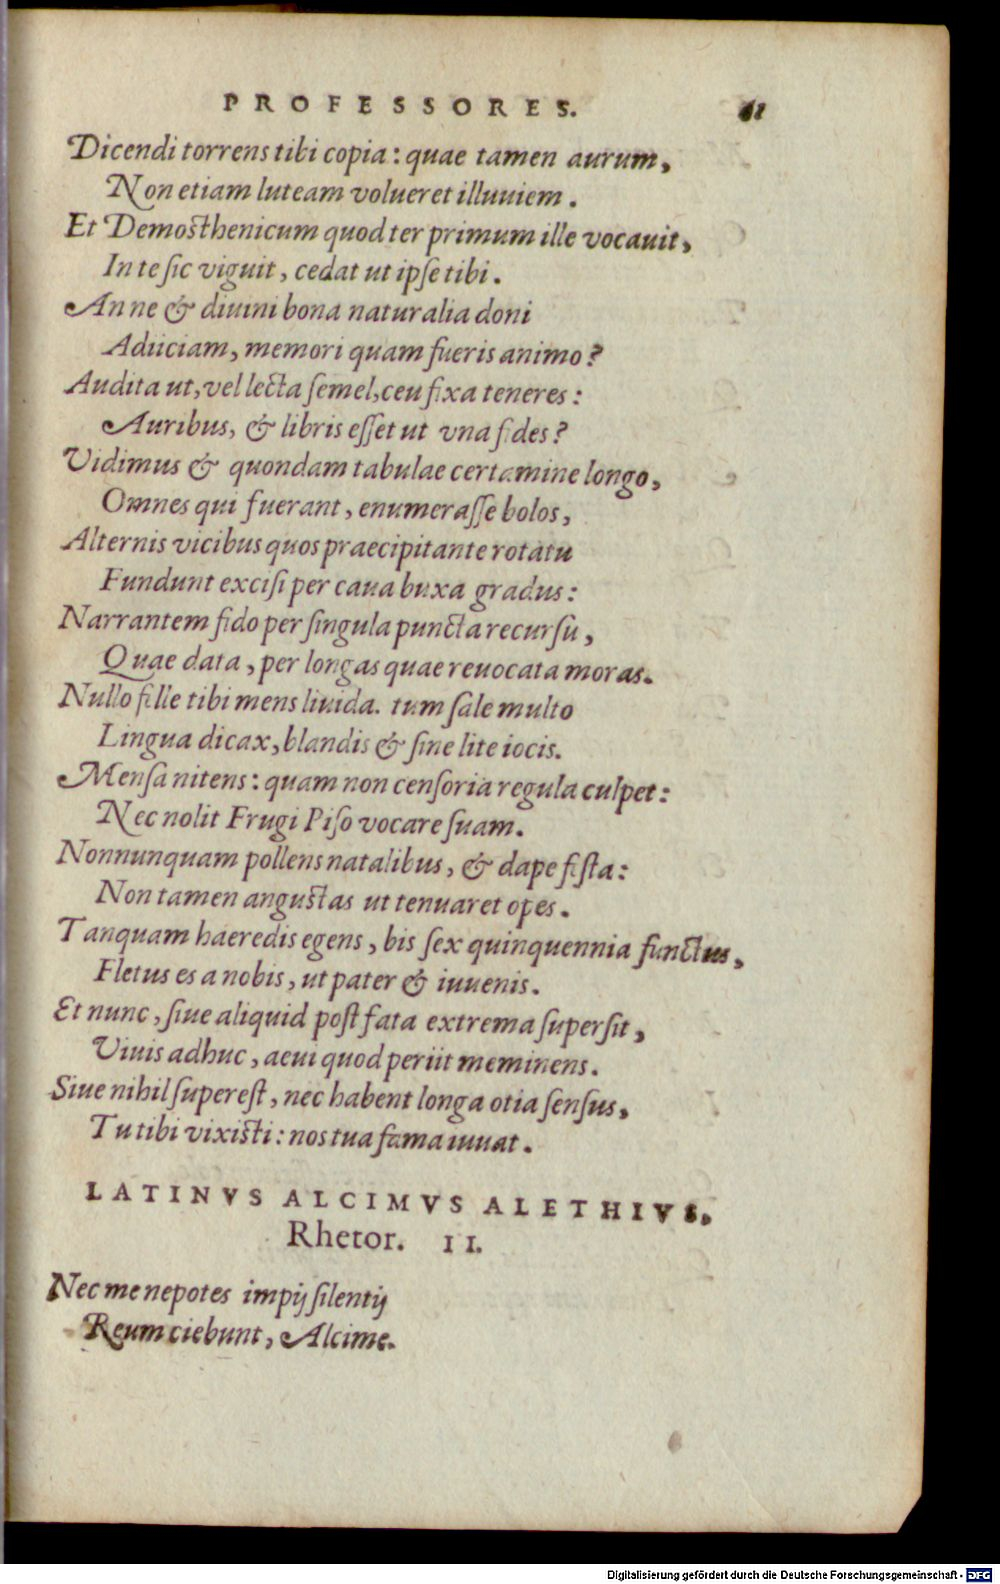 PROFESSORES. 61
Dicendi torrens tibi copia: quae tamen aurum,
Non etiam luteam volueret illuuiem.
Et Demosthenicum quod ter primum ille vocauit,
In te sic viguit, cedat ut ipse tibi.
Anne & diuini bona naturalia doni
Adiiciam, memori quam fueris animo?
Audita ut, vel lecta semel, ceu fixa teneres:
Auribus, & libris esset ut vna fides?
Vidimus & quondam tabulae certamine longo,
Omnes qui fuerant, enumerasse bolos,
Alternis vicibus quos praecipitante rotatu
Fundunt excisi per caua buxa gradus:
Narrantem fido per singula puncta recursu,
Quae data, per longas quae reuocata moras.
Nullo felle tibi mens liuida. tum sale multo
Lingua dicax, blandis & sine lite iocis.
Mensa nitens: quam non censoria regula culpet:
Nec nolit Frugi Piso vocare suam.
Nonnunquam pollens natalibus, & dape festa:
Non tamen angustas ut tenuaret opes.
Tanquam haeredis egens, bis sex quinquennia functus,
Fletus es a nobis, ut pater & iuuenis.
Et nunc, siue aliquid post fata extrema supersit,
Viuis adhuc, aeui quod periit meminens.
Siue nihil superest, nec habent longa otia sensus,
Tu tibi vixisti: nos tua fama iuuat.
LATINVS ALCIMVS ALETHIVS.
Rhetor. II.
Nec me nepotes impij silentij
Reum ciebunt, Alcime.
Digitalisierung gefördert durch die Deutsche Forschungsgemeinschaft - DFG